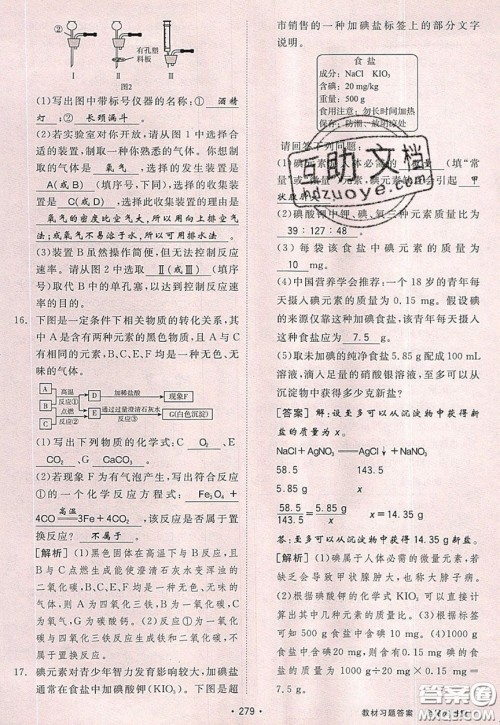 ①
②
有孔塑
料板
Ⅰ Ⅱ Ⅲ
图2
(1)写出图中带标号仪器的名称:① 酒精
灯;② 长颈漏斗。
(2)若实验室对你开放,请从图1中选择合
适的装置,制取一种你熟悉的气体。你想制
取的气体是 氧气,选择的发生装置是
A(或B)(填序号,下同),选择的收集装置
是 C(或D),选择该收集装置的依据是
氧气的密度比空气大,所以用向上排空气
法;氧气不易溶于水,可以用排水法。
(3)装置B虽然操作简便,但无法控制反应
速率。请从图2中选择 Ⅱ(或Ⅲ)(填序
号)取代B中的单孔塞,以达到控制反应速
率的目的。
16. 下图是一定条件下相关物质的转化关系,其
中A是含有两种元素的黑色物质,且A与C
有相同的元素,B、C、E、F均是一种无色、无
味的气体。
A
B
高温
反应①
点燃
反应②
C
D
E
加稀盐酸
现象F
通过过量澄清石灰水
G(白色沉淀)
(1)写出下列物质的化学式:C O₂、E
CO₂、G CaCO₃。
(2)若现象F有气泡产生,写出符合反应
①的一个化学反应方程式:Fe₃O₄+
4CO 高温 3Fe+4CO₂,该反应是否属于
置换反应?不属于。
[解析] (1)黑色固体在高温下与B反应,且
B与C点燃后能生成使澄清石灰水变浑浊的
二氧化碳,B、C、E、F均是一种无色、无味的
气体,则A为四氧化三铁,B为一氧化碳,四
氧化三铁与一氧化碳反应生成铁和二氧化碳。
17. 碘元素对青少年智力发育影响较大,加碘盐
通常在食盐中加碘酸钾(KIO₃)。下图是超
市销售的一种加碘盐标签上的部分文字
说明。
食盐
成分:NaCl KIO₃
含碘:20 mg/kg
重量:500 g
食用注意:勿长时间加热
保存:防潮、放阴凉处
请回答下列问题:
互助文档
hdzuoye.com
(2)碘酸钾中钾、碘、氧三种元素质量比为
39:127:48。
(3)每袋该食盐中碘元素的质量为
10 mg。
(4)中国营养学会推荐:一个18岁的青年每
天摄入碘元素的质量为0.15 mg。假设碘的
来源仅靠这种加碘食盐,该青年每天约摄入
该食盐的质量应为 7.5 g。
(5)取未加碘的纯净食盐5.85 g配成100 mL
溶液,滴入足量的硝酸银溶液,至多可以从
沉淀物中获得多少克新盐?
[答案] 解:设至多可以从沉淀物中获得新
盐的质量为x。
NaCl+AgNO₃══AgCl↓+NaNO₃
58.5 143.5
5.85 g x
58.5/143.5=5.85 g/x x=14.35 g
答:至多可以从沉淀物中获得14.35 g新盐。
[解析] (1)碘属于人体必需的微量元素,若
缺乏会导致甲状腺肿大,也称为大脖子病。
(2)根据碘酸钾的化学式KIO₃可以直接计
算出其中几种元素的质量比。
(3)500 g食盐中含碘元素的质量为10 mg。
(4)摄入食盐的质量为1000 g÷20 mg×0.15 mg=
7.5 g。
279
教材习题答案